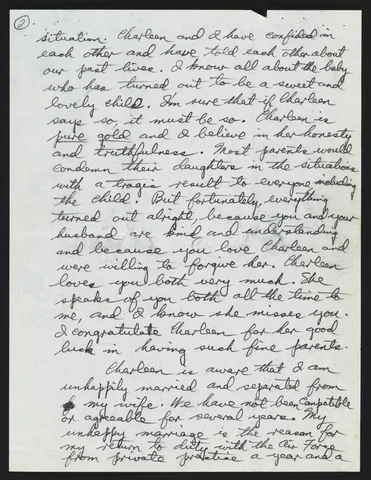 2
situation. Charleen and I have confided in
each other and have told each other about
our past lives. I know all about the baby
who has turned out to be a sweet and
lovely child. I'm sure that if Charleen
says so, it must be so. Charleen is
pure gold and I believe in her honesty
and truthfulness. Most parents would
condemn their daughters in the situations
with a tragic result to everyone including
the child. But fortunately, everything
turned out alright, because you and your
husband are kind and understanding
and because you love Charleen and
were willing to forgive her. Charleen
loves you both very much. She
speaks of you both all the time to
me, and I know she misses you.
I congratulate Charleen for her good
luck in having such fine parents.
Charleen is aware that I am
unhappily married and separated from
my wife. We have not been compatible
or agreeable for several years. My
unhappy marriage is the reason for
my return to duty with the Air Force
from private practise a year and a